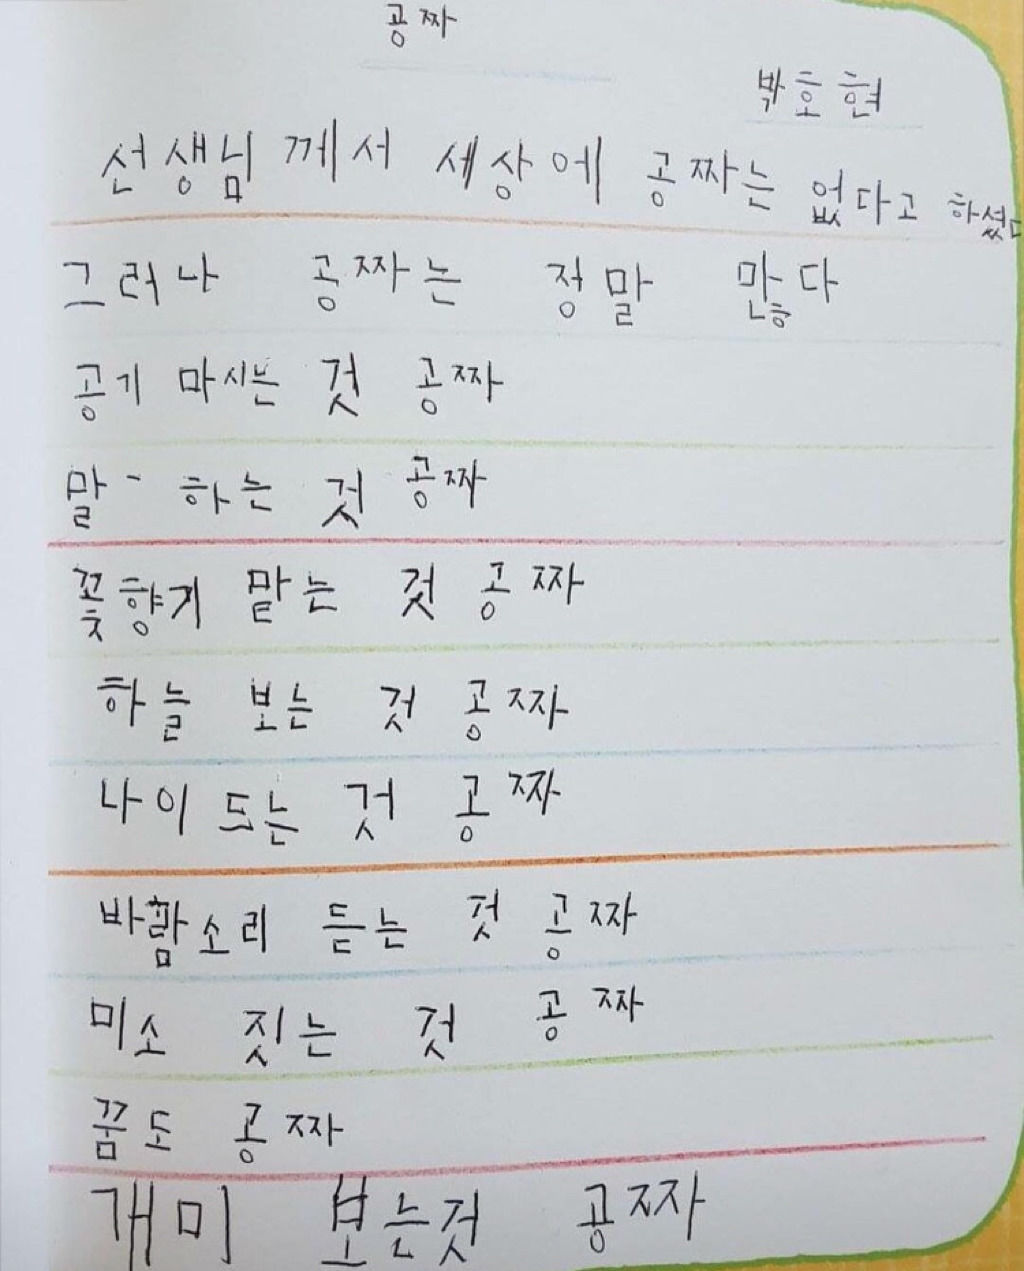 공짜
박호현
선생님 께서 세상에 공짜는 없다고 하셨다
그러나 공짜는 정말 많다
공기 마시는 것 공짜
말 - 하는 것 공짜
꽃향기 맡는 것 공짜
하늘 보는 것 공짜
나이 드는 것 공짜
바람소리 듣는 것 공짜
미소 짓는 것 공짜
꿈도 공짜
개미 보는것 공짜